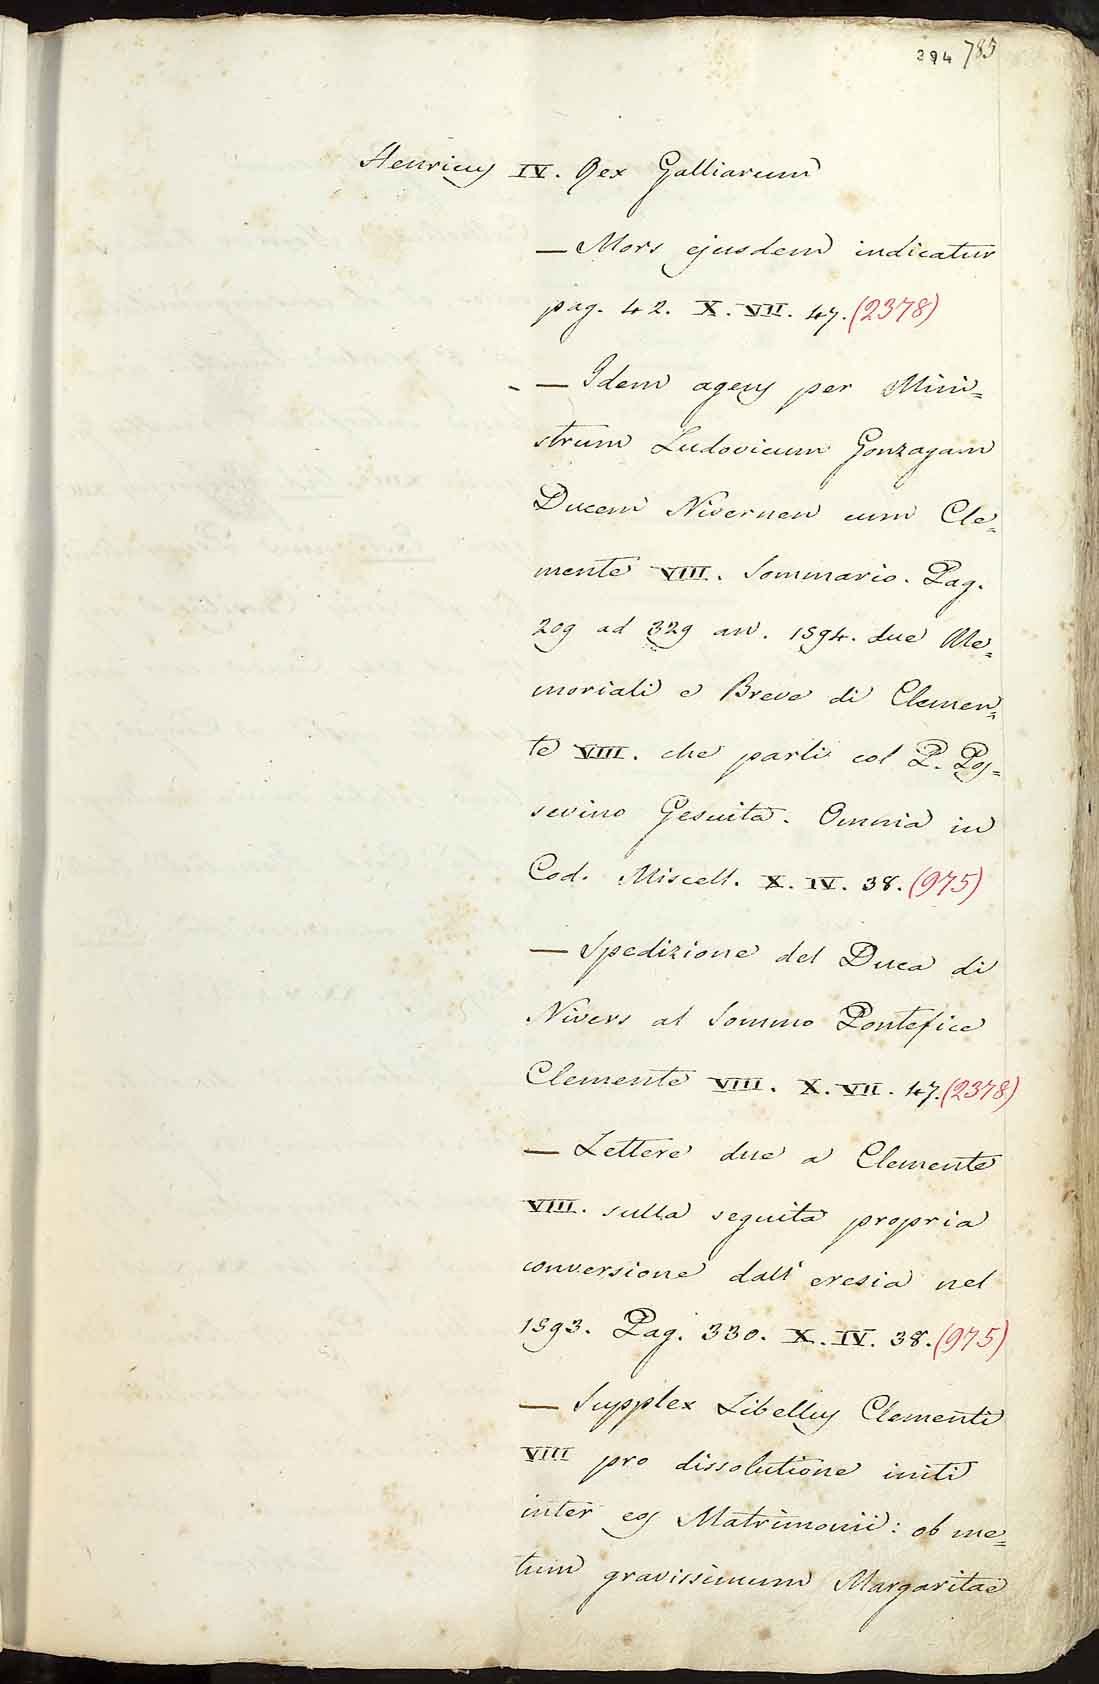 394 785
Henricus IV. Rex Galliarum
— Mors ejusdem indicatur
pag. 42. X. VII. 47. (2378)
- — Idem agens per Mini=
strum Ludovicum Gonzagam
Ducem Nivernen cum Cle=
mente VIII. Sommario. Pag.
209 ad 329 an. 1594. due Me=
moriali e Breve di Clemen=
te VIII. che parli col P. Pos=
sevino Gesuita. Omnia in
Cod. Miscell. X. IV. 38. (975)
— Spedizione del Duca di
Nivers al Sommo Pontefice
Clemente VIII. X. VII. 47. (2378)
— Lettere due a Clemente
VIII. sulla seguita propria
conversione dall' eresia nel
1593. Pag. 330. X. IV. 38. (975)
— Supplex Libellus Clementi
VIII pro dissolutione initi
inter eos Matrimonii: ob me=
tum gravissimum Margaritae